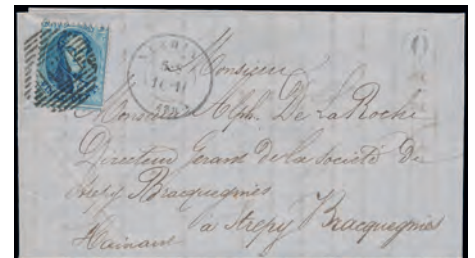 Monsieur
Monsieur Alph. De La Roche
Directeur Gerant De la Société De
Strepy Bracquegnies
à Strepy Bracquegnies
Hainaut